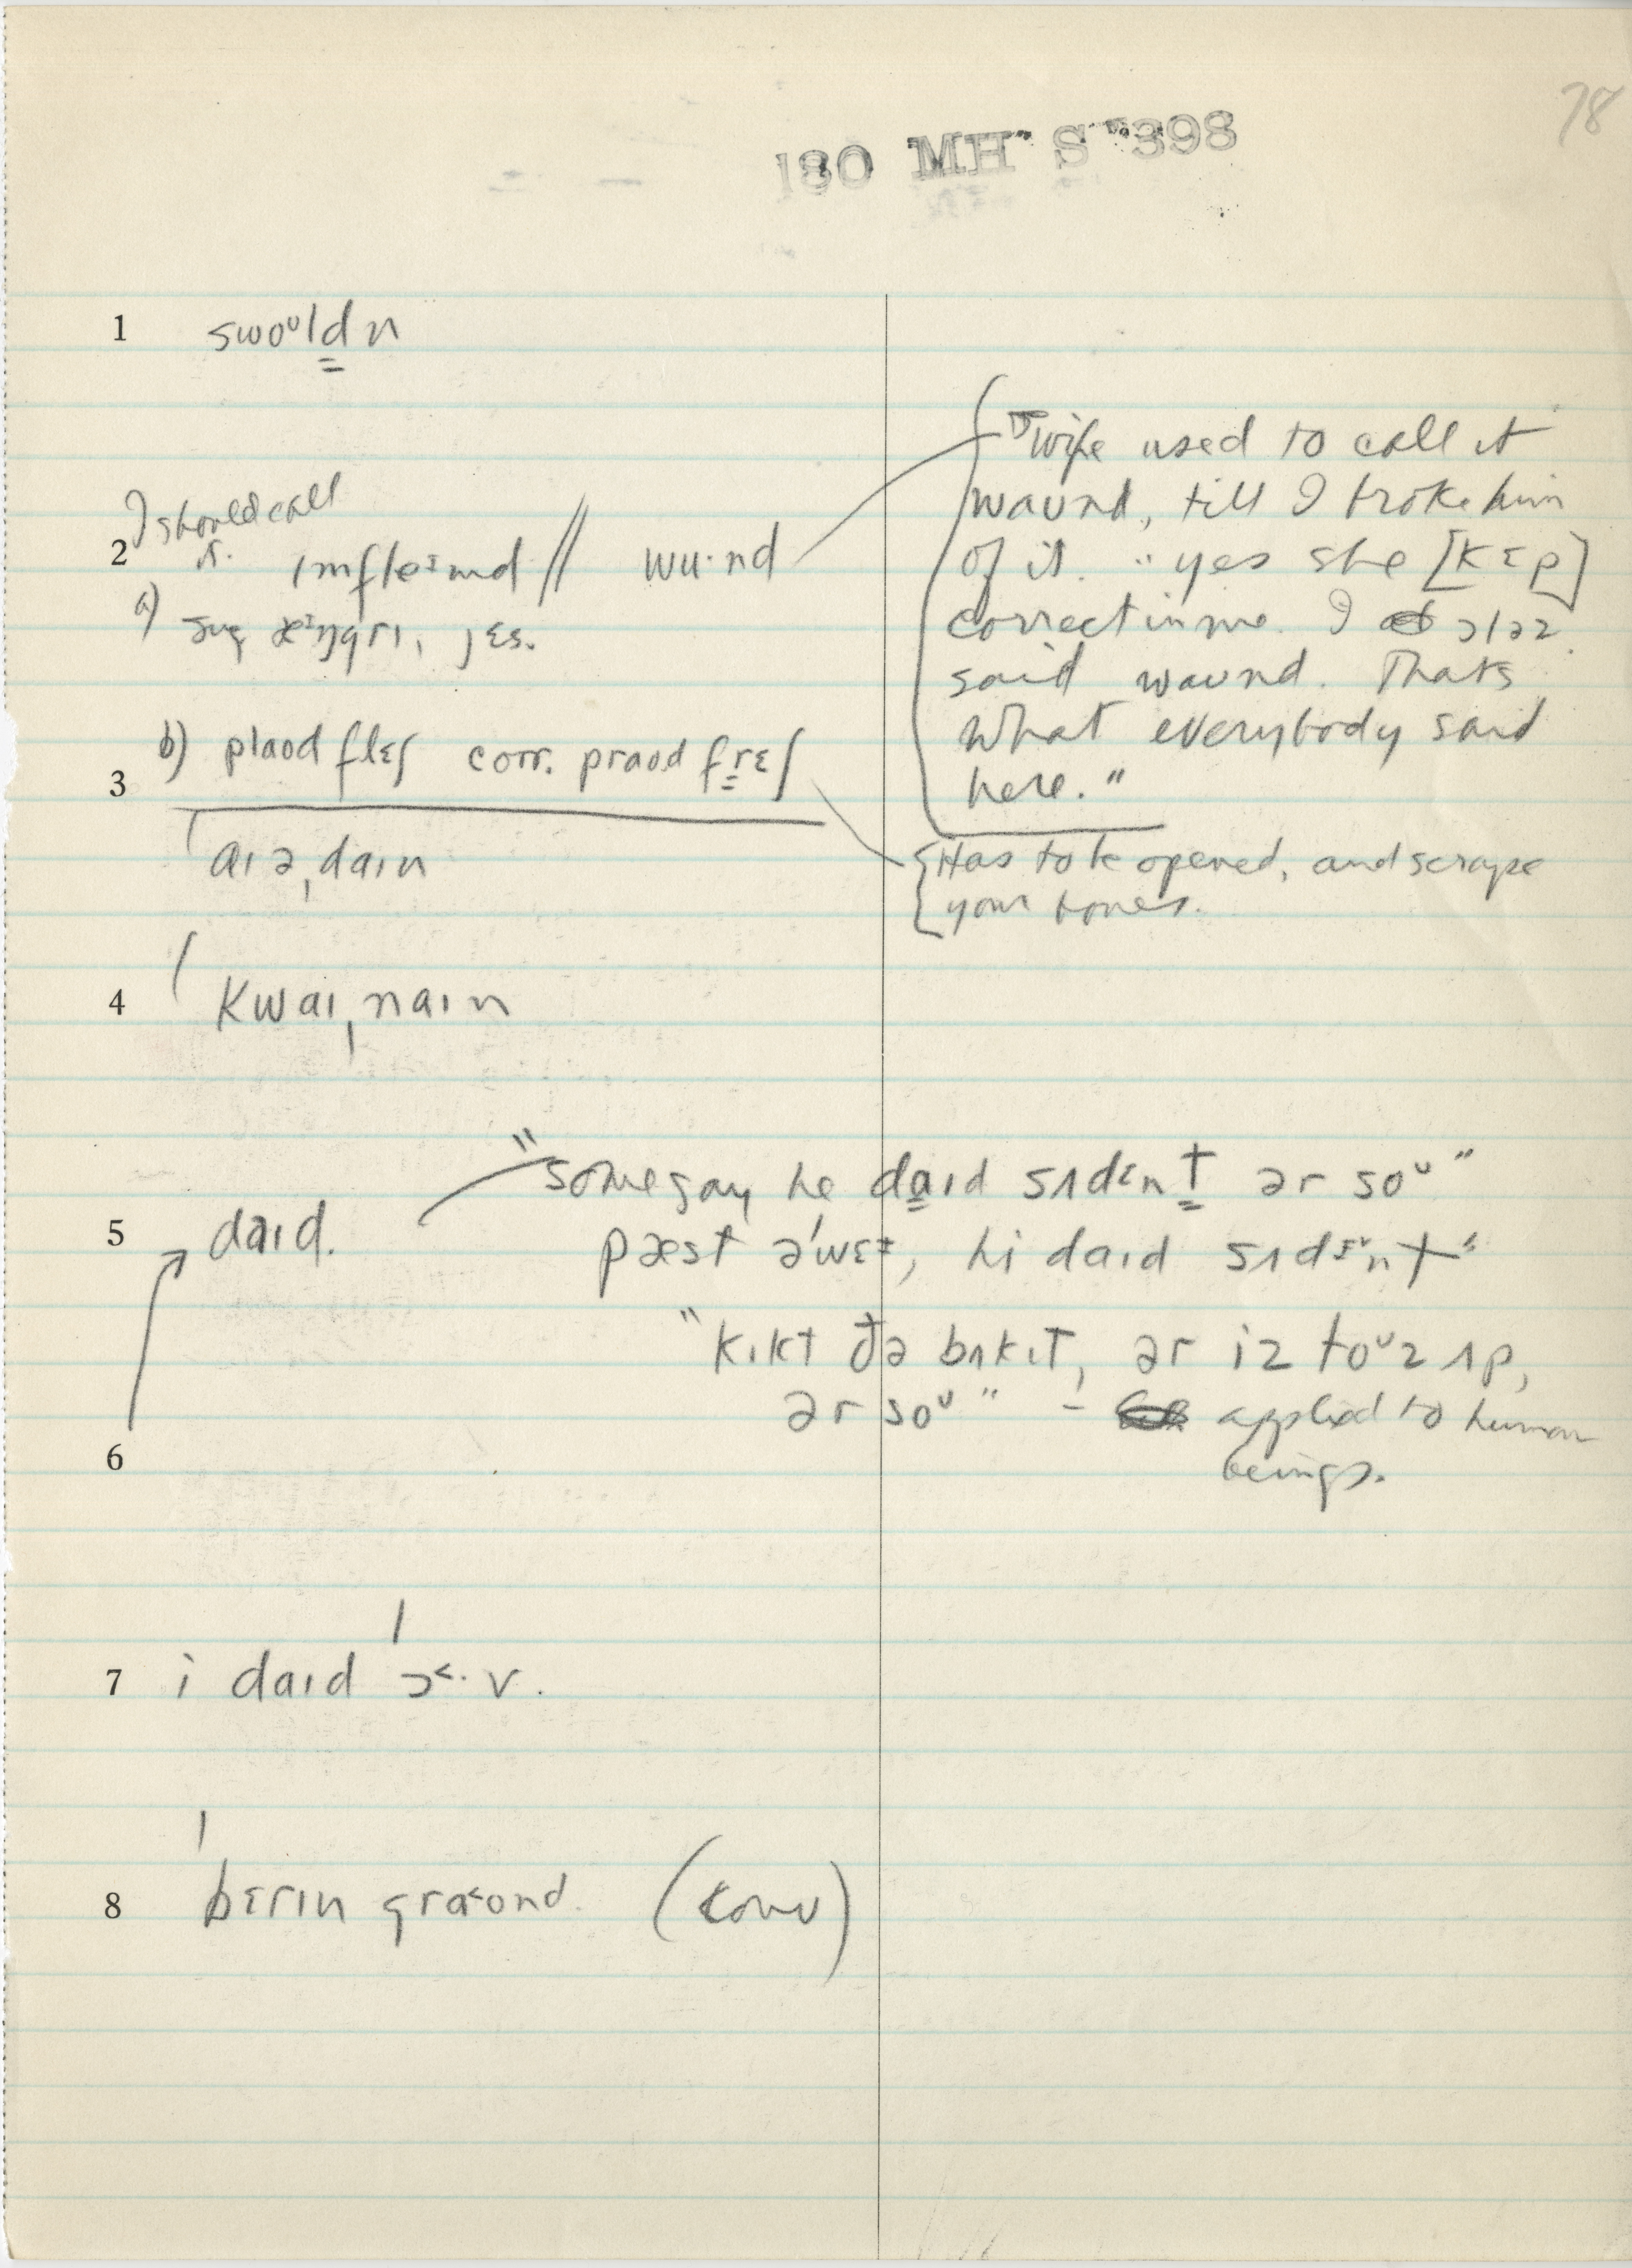 78
180 MH S 398
1 swoᵘld̳n
2 I should call
it. ɪmfleᶦmd // wu·nd
"wife used to call it
waʊnd, till I broke him
of it. "yes she [kɛp]
correctin me. I ɔləz
said waʊnd. Thats
what everybody said
here."
a) æᶦŋgrɪ, jɛs.
3 b) plaʊd flɛʃ corr. praʊd fr̳ɛʃ
Has to be opened, and scrape
your bones.
ˈaɪəˌdaɪn
4 ˈkwaɪˌnaɪn
5 daɪd.
"some say he da̳ɪd sʌdɛnt̳ ər soᵘ"
pæst əˈwɛᶦ, hi daɪd sʌdn̩t"
"kɪkt ðə bʌkɪt, ər iz toᵘz ʌp,
ər soᵘ" – applied to human
beings.
6
7 i daɪd ˈɔ˂·v.
8 ˈbɛrɪn gra˂ʊnd. (conv)